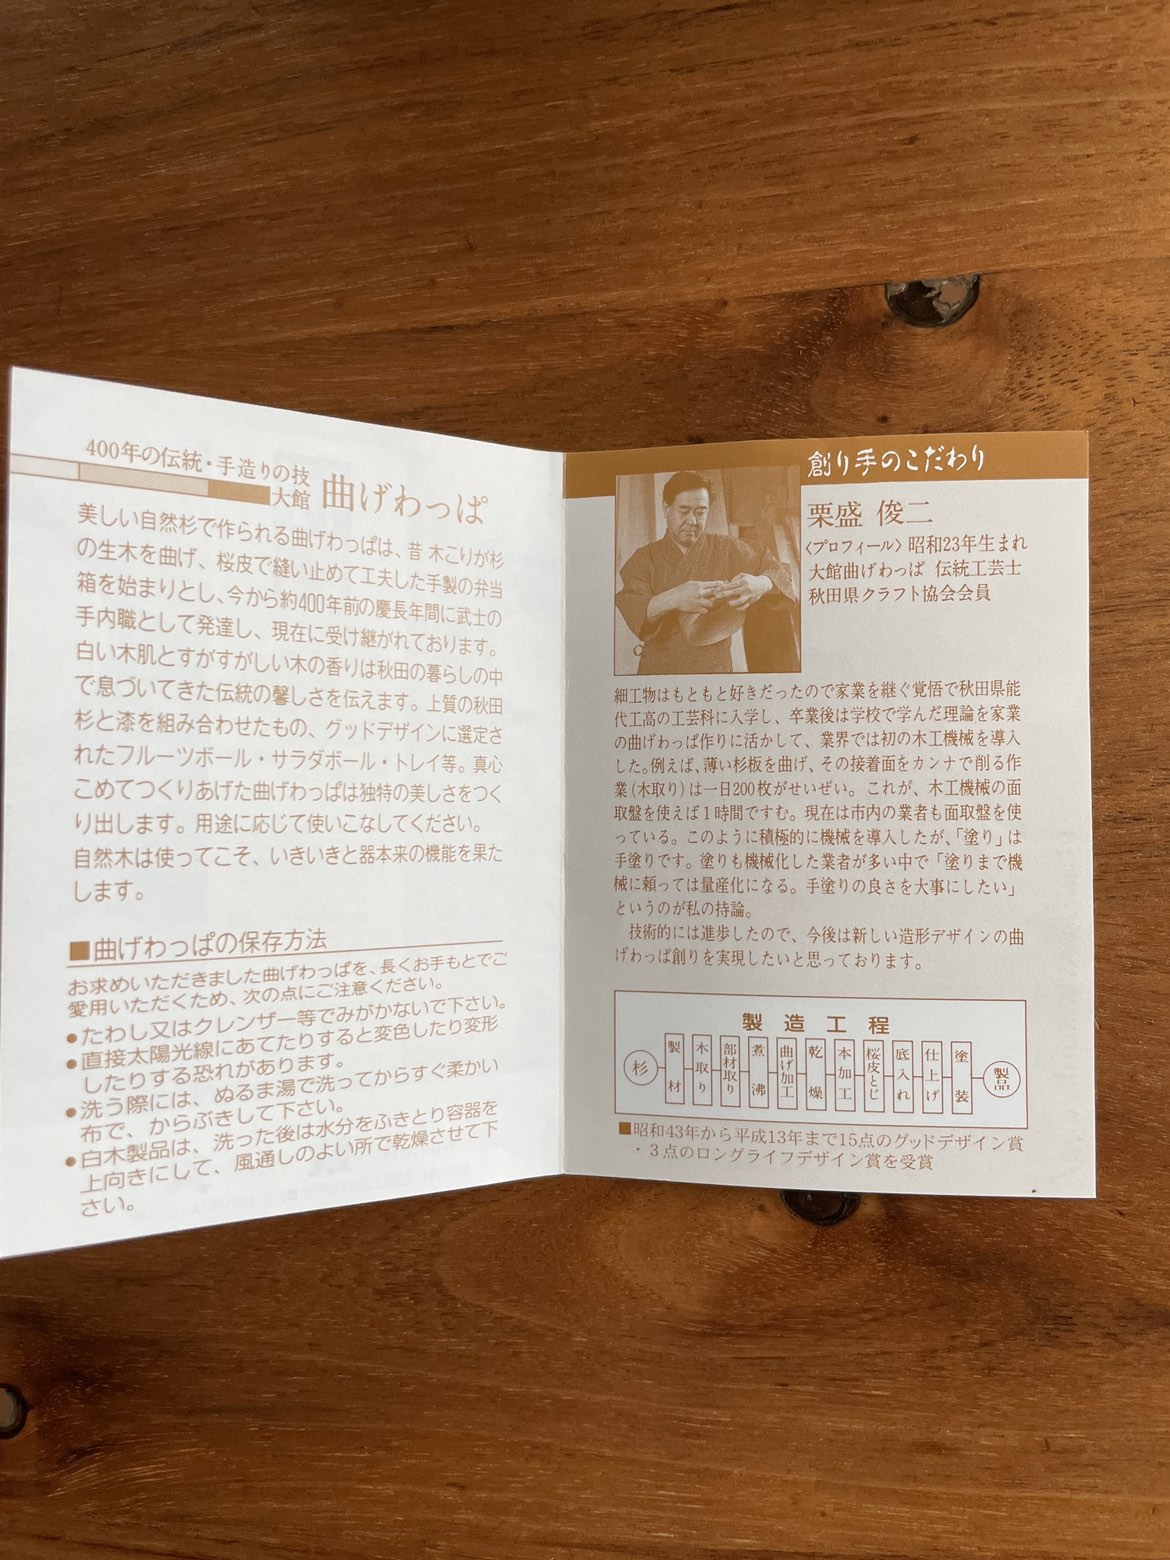 400年の伝統・手造りの技
大館 曲げわっぱ
美しい自然杉で作られる曲げわっぱは、昔 木こりが杉
の生木を曲げ、桜皮で縫い止めて工夫した手製の弁当
箱を始まりとし、今から約400年前の慶長年間に武士の
手内職として発達し、現在に受け継がれております。
白い木肌とすがすがしい木の香りは秋田の暮らしの中
で息づいてきた伝統の馨しさを伝えます。上質の秋田
杉と漆を組み合わせたもの、グッドデザインに選定さ
れたフルーツボール・サラダボール・トレイ等。真心
こめてつくりあげた曲げわっぱは独特の美しさをつく
り出します。用途に応じて使いこなしてください。
自然木は使ってこそ、いきいきと器本来の機能を果た
します。
■曲げわっぱの保存方法
お求めいただきました曲げわっぱを、長くお手もとでご
愛用いただくため、次の点にご注意ください。
●たわし又はクレンザー等でみがかないで下さい。
●直接太陽光線にあてたりすると変色したり変形
したりする恐れがあります。
●洗う際には、ぬるま湯で洗ってからすぐ柔かい
布で、からぶきして下さい。
●白木製品は、洗った後は水分をふきとり容器を
上向きにして、風通しのよい所で乾燥させて下
さい。
創り手のこだわり
栗盛 俊二
〈プロフィール〉昭和23年生まれ
大館曲げわっぱ 伝統工芸士
秋田県クラフト協会会員
細工物はもともと好きだったので家業を継ぐ覚悟で秋田県能
代工高の工芸科に入学し、卒業後は学校で学んだ理論を家業
の曲げわっぱ作りに活かして、業界では初の木工機械を導入
した。例えば、薄い杉板を曲げ、その接着面をカンナで削る作
業(木取り)は一日200枚がせいぜい。これが、木工機械の面
取盤を使えば1時間ですむ。現在は市内の業者も面取盤を使
っている。このように積極的に機械を導入したが、「塗り」は
手塗りです。塗りも機械化した業者が多い中で「塗りまで機
械に頼っては量産化になる。手塗りの良さを大事にしたい」
というのが私の持論。
技術的には進歩したので、今後は新しい造形デザインの曲
げわっぱ創りを実現したいと思っております。
製造工程
杉
製材
木取り
部材取り
煮沸
曲げ加工
乾燥
本加工
桜皮とじ
底入れ
仕上げ
塗装
製品
■昭和43年から平成13年まで15点のグッドデザイン賞
・3点のロングライフデザイン賞を受賞